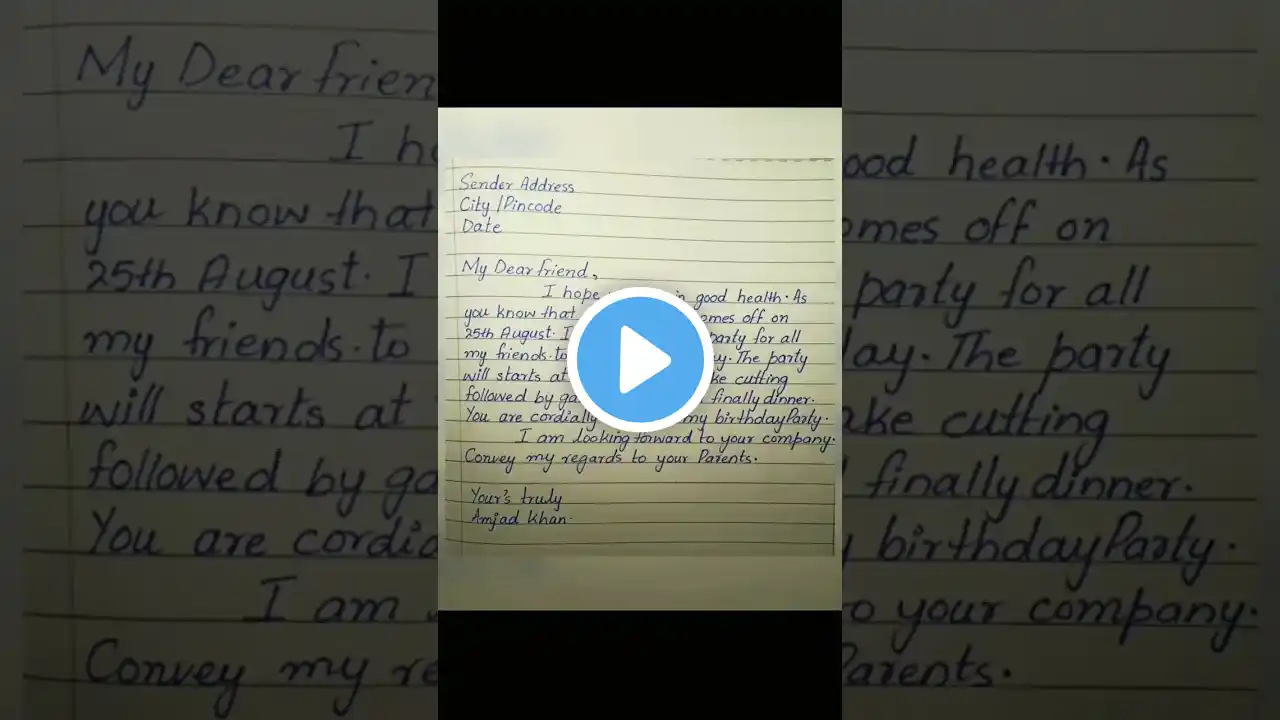 Sender Address
City/Pincode
Date
My Dear friend,
I hope good health. As
you know that off on
25th August. I party for all
my friends.to The party
will starts at cutting
followed by finally dinner.
You are cordially my birthdayParty.
I am looking forward to your company.
Convey my regards to your Parents.
Your's truly
Amjad Khan.